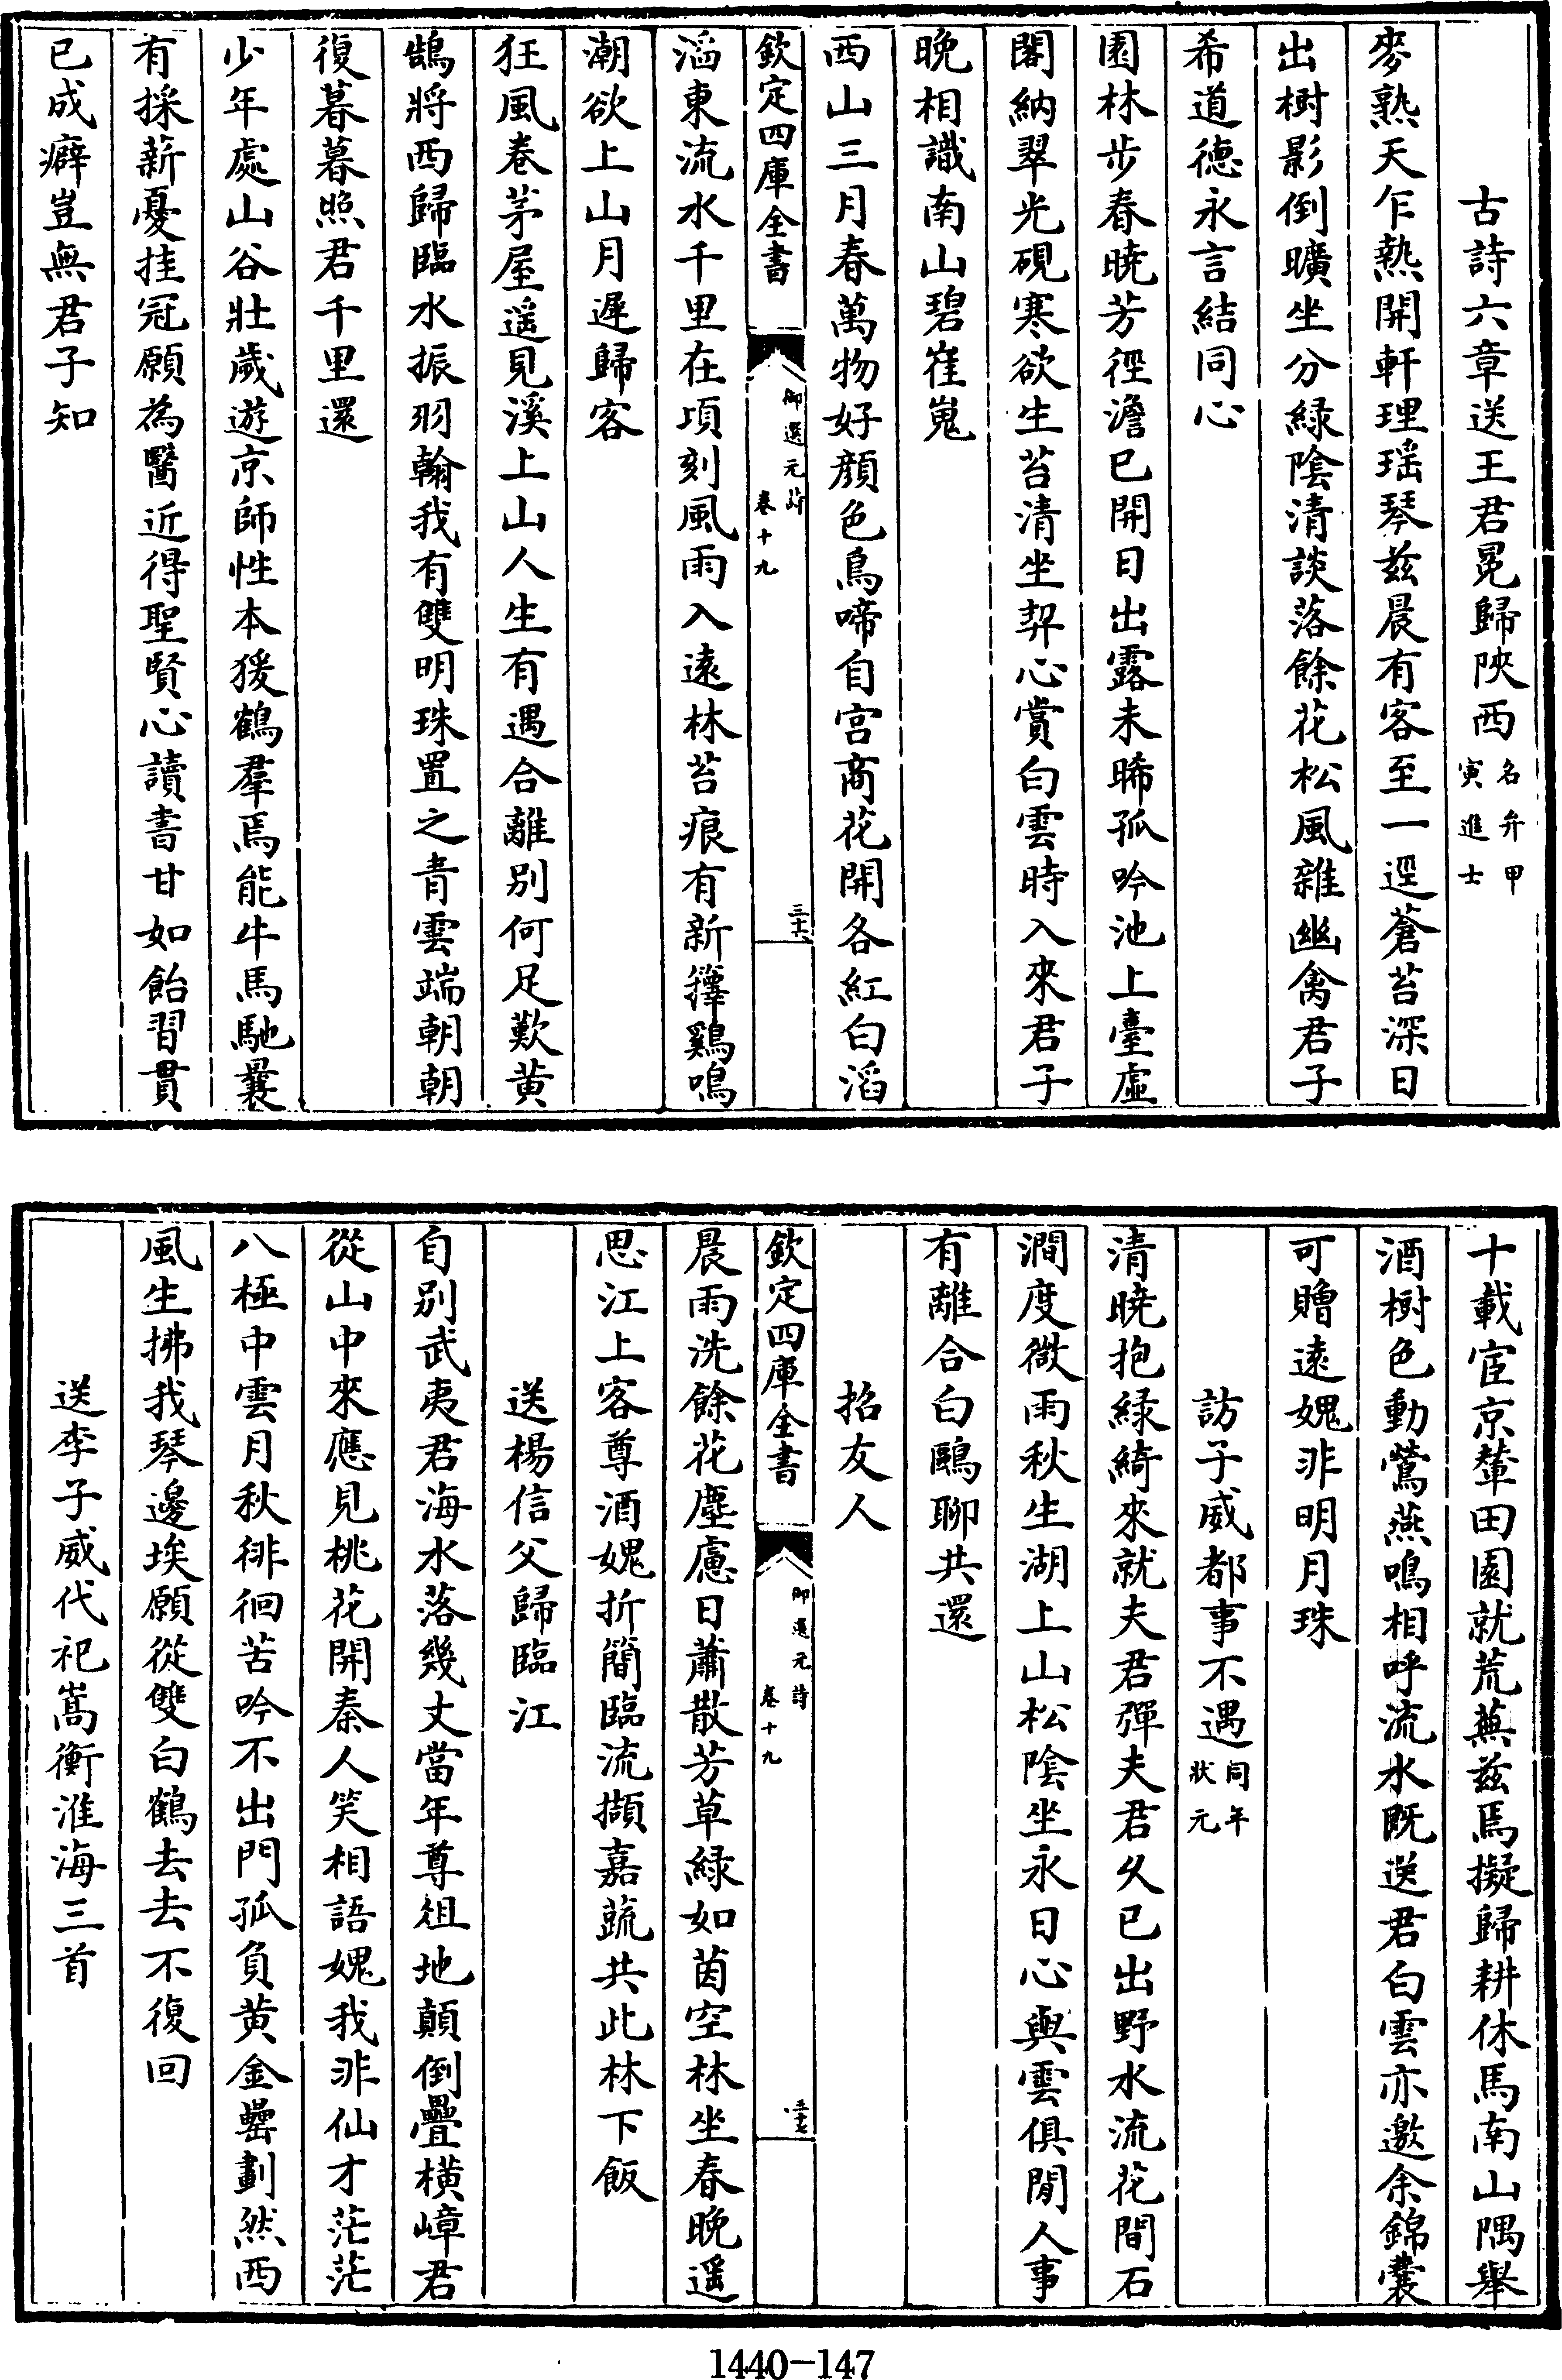 古詩六章送王君冕歸陜西名弁甲寅進士
麥熟天乍熱開軒理瑶琴兹晨有客至一逕蒼苔深日
出樹影倒曠坐分緑陰清談落餘花松風雜幽禽君子
希道德永言結同心
園林步春曉芳徑澹已開日出露未晞孤吟池上臺虛
閣納翠光硯寒欲生苔清坐契心賞白雲時入來君子
晚相識南山碧崔嵬
西山三月春萬物好顔色鳥啼自宫商花開各紅白滔
欽定四庫全書
御選元詩
卷十九
三十六
滔東流水千里在頃刻風雨入遠林苔痕有新籜鷄鳴
潮欲上山月遲歸客
狂風卷茅屋遥見溪上山人生有遇合離别何足歎黄
鵠將西歸臨水振羽翰我有雙明珠置之青雲端朝朝
復暮暮照君千里還
少年處山谷壯歲遊京師性本猨鶴羣焉能牛馬馳曩
有採薪憂挂冠願為醫近得聖賢心讀書甘如飴習貫
已成癖豈無君子知
十載宦京輦田園就荒蕪兹焉擬歸耕休馬南山隅舉
酒樹色動鶯燕鳴相呼流水既送君白雲亦邀余錦囊
可贈遠媿非明月珠
訪子威都事不遇同年狀元
清曉抱緑綺來就夫君彈夫君久已出野水流花間石
澗度微雨秋生湖上山松陰坐永日心與雲俱閒人事
有離合白鷗聊共還
招友人
欽定四庫全書
御選元詩
卷十九
三十七
晨雨洗餘花塵慮日蕭散芳草緑如茵空林坐春晚遥
思江上客尊酒媿折簡臨流擷嘉蔬共此林下飯
送楊信父歸臨江
自别武夷君海水落幾丈當年尊俎地顛倒疊横嶂君
從山中來應見桃花開秦人笑相語媿我非仙才茫茫
八極中雲月秋徘徊苦吟不出門孤負黄金罍劃然西
風生拂我琴邊埃願從雙白鶴去去不復回
送李子威代祀嵩衡淮海三首
1440-147